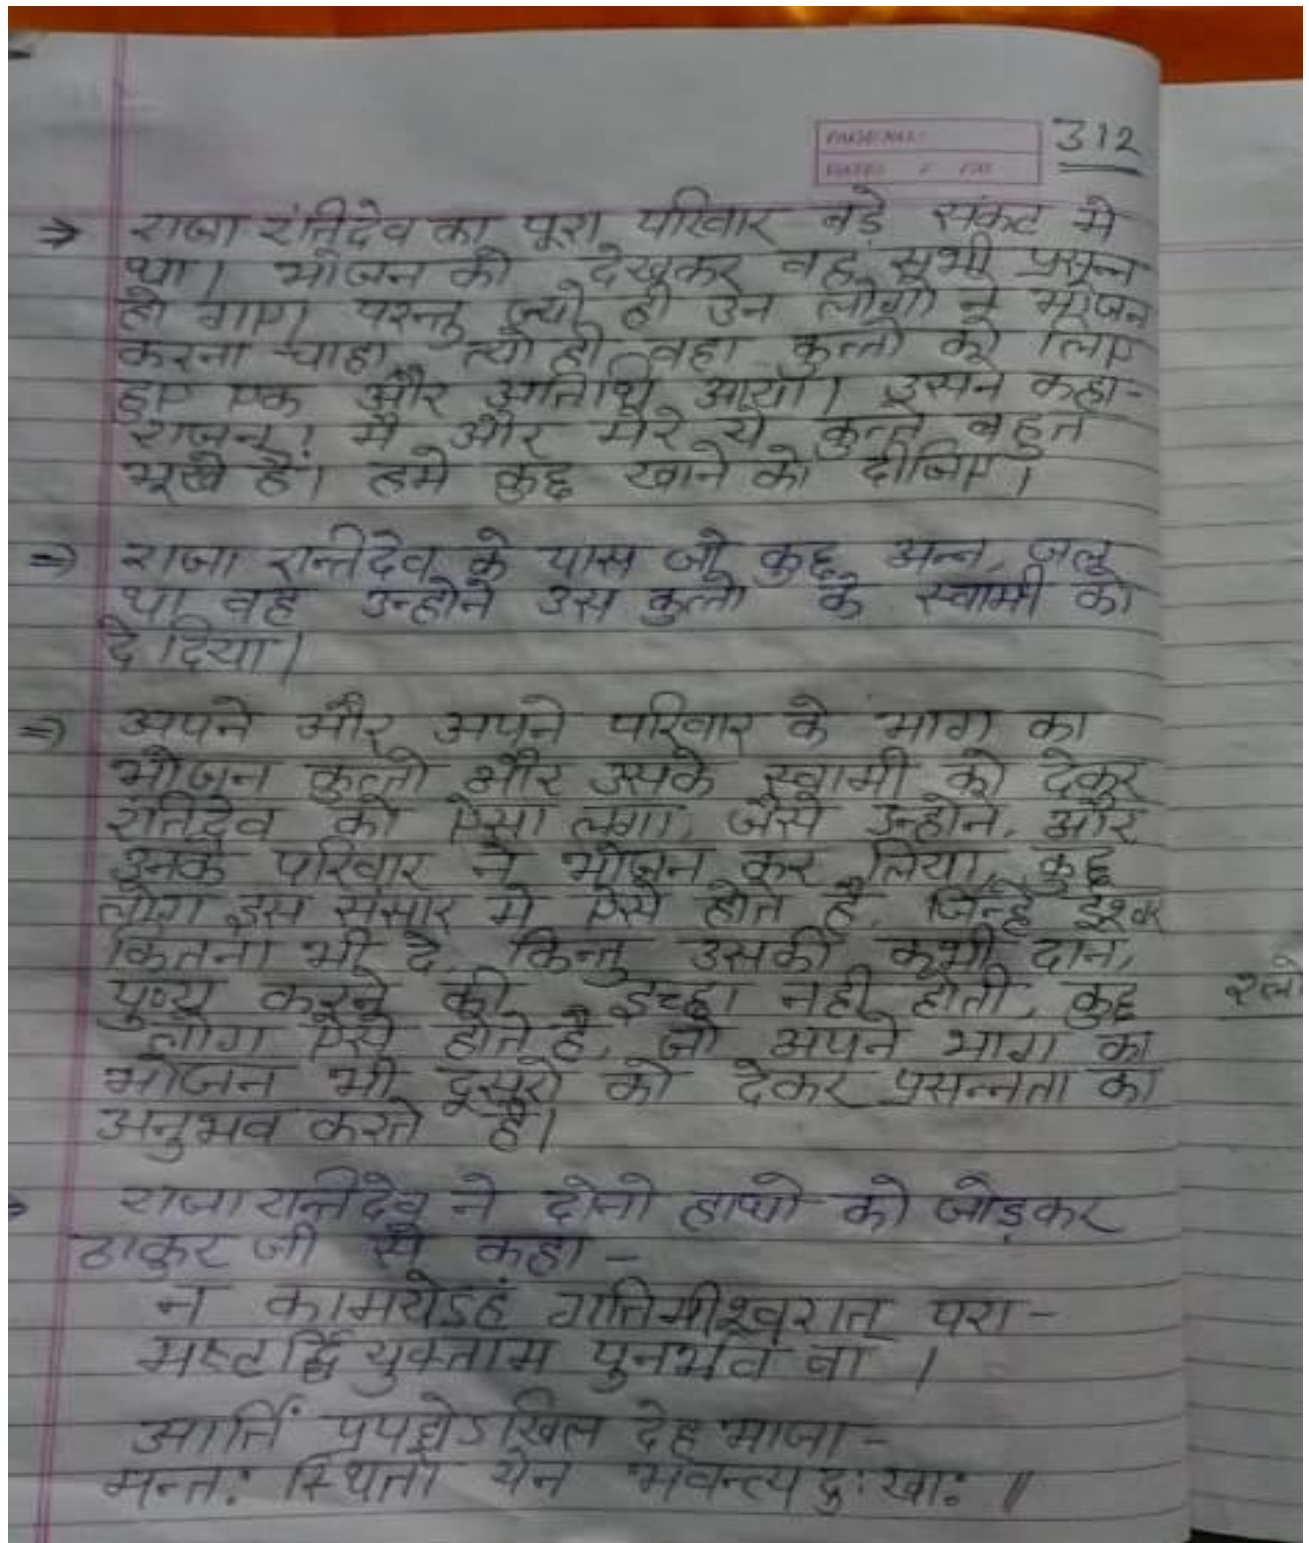 312
PAGE NO.:
DATE: / /20
⇒ राजा रंतिदेव का पूरा परिवार बड़े संकट मे
था। भोजन को देखकर वह सभी प्रसन्न
हो गाए। परन्तु ज्यो ही उन लोगो ने भोजन
करना चाहा त्यो ही वहा कुत्तो को लिए
हुए एक और अतिथि आया। उसने कहा-
राजन्! मै और मेरे ये कुत्ते बहुत
भूखे है। हमे कुछ खाने को दीजिए।
⇒ राजा रान्तिदेव के पास जो कुछ अन्न, जल
था वह उन्होने उस कुत्तो के स्वामी को
दे दिया।
⇒ अपने और अपने परिवार के भाग का
भोजन कुत्तो और उसके स्वामी को देकर
रंतिदेव को ऐसा लगा, जैसे उन्होने, और
उनके परिवार ने भोजन कर लिया, कुछ
लोग इस संसार मे ऐसे होते है, जिन्हे ईश्वर
कितना भी दे, किन्तु उसकी कभी दान,
पुण्य करने की इच्छा नही होती, कुछ
लोग ऐसे होते है, जो अपने भाग का
भोजन भी दूसरो को देकर प्रसन्नता का
अनुभव करते है।
राजा रान्तिदेव ने दोनो हाथो को जोड़कर
ठाकुर जी से कहा -
न कामयेऽहं गतिमीश्वरात् परा -
मष्टर्द्धि युक्ताम पुनर्भवं वा ।
आर्तिं प्रपद्येऽखिल देह भाजा -
मन्त: स्थितो येन भवन्त्य दु:खा: ॥
श्लो